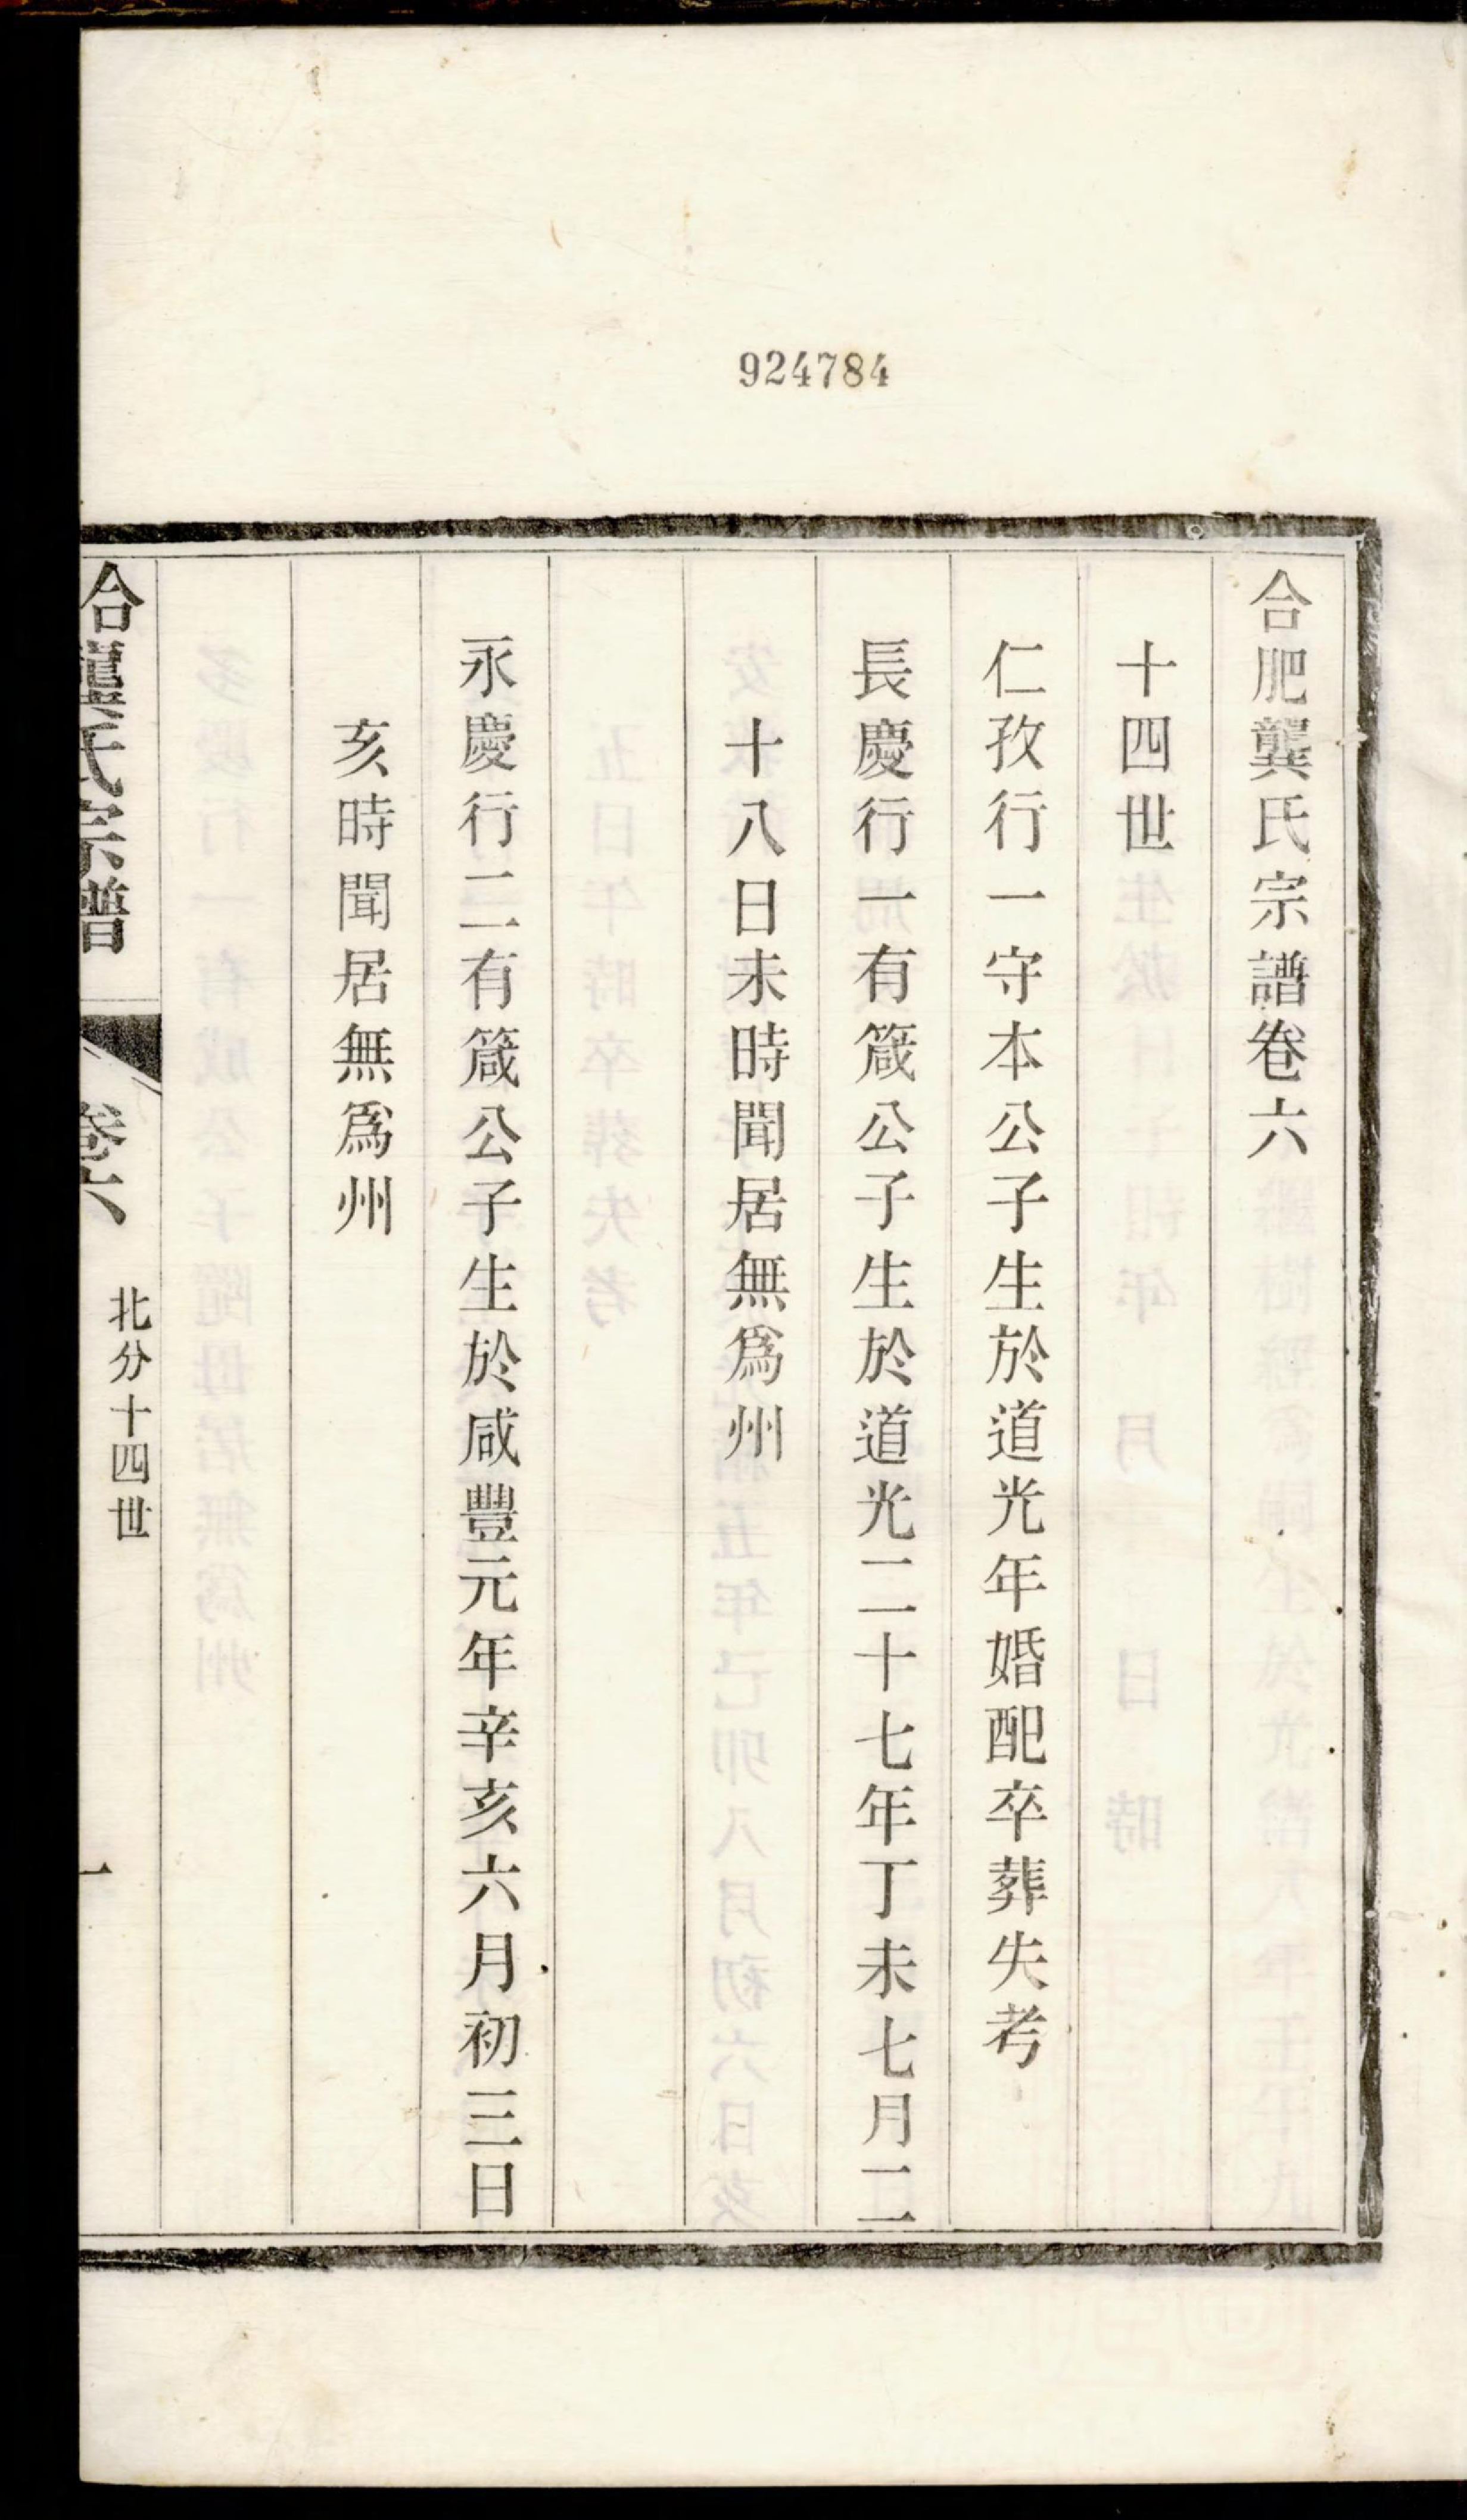 924784
合肥龔氏宗譜卷六
十四世
仁孜行一守本公子生於道光年婚配卒葬失考
長慶行一有箴公子生於道光二十七年丁未七月二
十八日未時聞居無爲州
永慶行二有箴公子生於咸豐元年辛亥六月初三日
亥時聞居無爲州
合龔氏宗譜
卷六
北分十四世
一